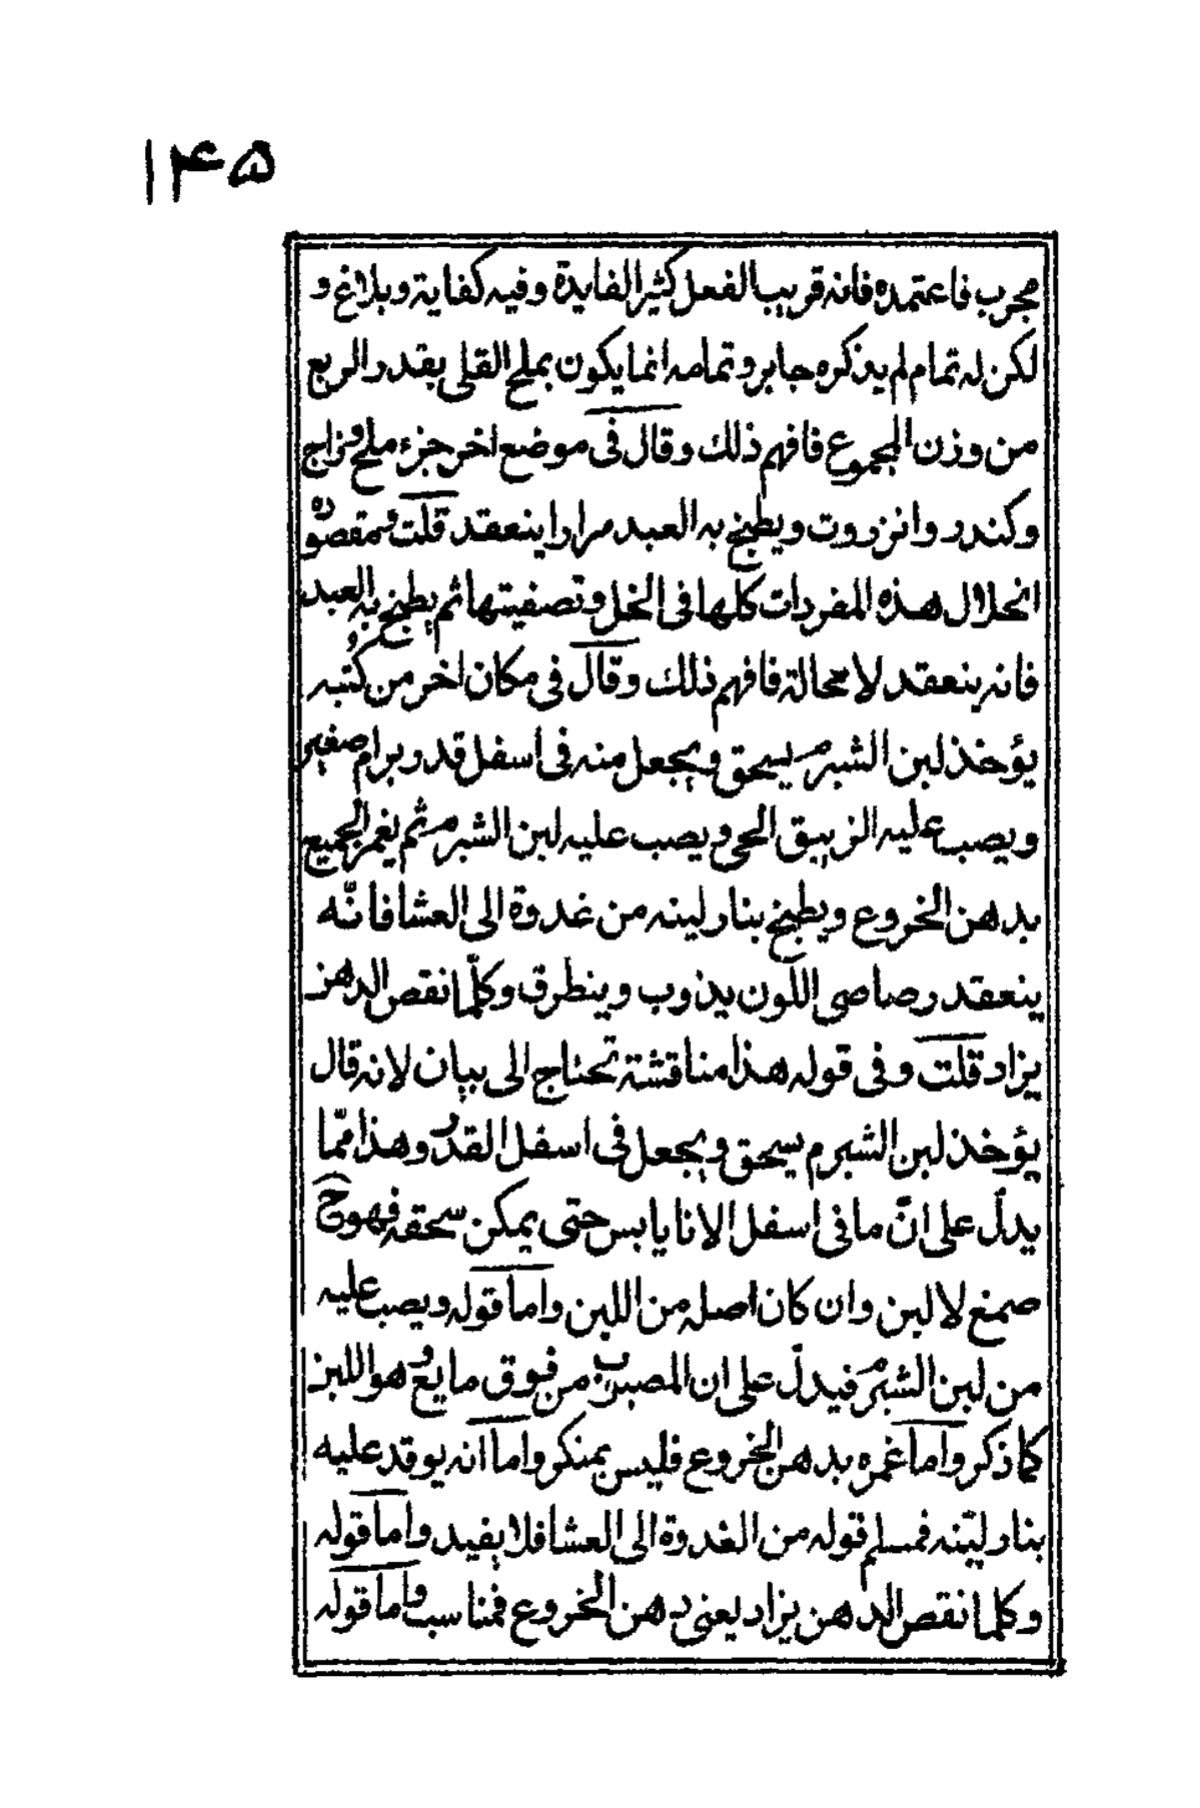 ۱۴۵
مجرب فاعتمده فانه قريب الفعل كثير الفايدة وفيه كفاية وبلاغ و
لكن له تمام لم يذكره جابر وتمامه انما يكون بملح القلى بقدر الربع
من وزن المجموع فافهم ذلك وقال فى موضع اخر جزء ملح وزاج
وكندر وانزروت ويطبخ به العبد مرارا ينعقد قلت ومقصوده
انحلال هذه المفردات كلها فى الخل وتصفيتها ثم يطبخ به العبد
فانه ينعقد لا محالة فافهم ذلك وقال فى مكان اخر من كُتبه
يؤخذ لبن الشبرم يسحق ويجعل منه فى اسفل قدر برام صغير
ويصب عليه الزيبق الحى ويصب عليه لبن الشبرم ثم يغمر الجميع
بدهن الخروع ويطبخ بنار لينه من غدوة الى العشا فانّه
ينعقد رصاصى اللون يذوب وينطرق وكلّما نقص الدهن
يزاد قلت وفى قوله هذا مناقشة تحتاج الى بيان لانه قال
يؤخذ لبن الشبرم يسحق ويجعل فى اسفل القدر وهذا ممّا
يدلّ على انّ ما فى اسفل الانا يابس حتى يمكن سحقه فهو ح
صمغ لا لبن وان كان اصله من اللبن واما قوله ويصب عليه
من لبن الشبرم فيدلّ على ان المصبوب من فوق مايع وهو اللبن
كما ذكر واما غمره بدهن الخروع فليس بمنكر واما انه يوقد عليه
بنار ليّنه فمسلم قوله من الغدوة الى العشا فلا يفيد واما قوله
وكلما نقص الدهن يزاد يعنى دهن الخروع فمناسب واما قوله